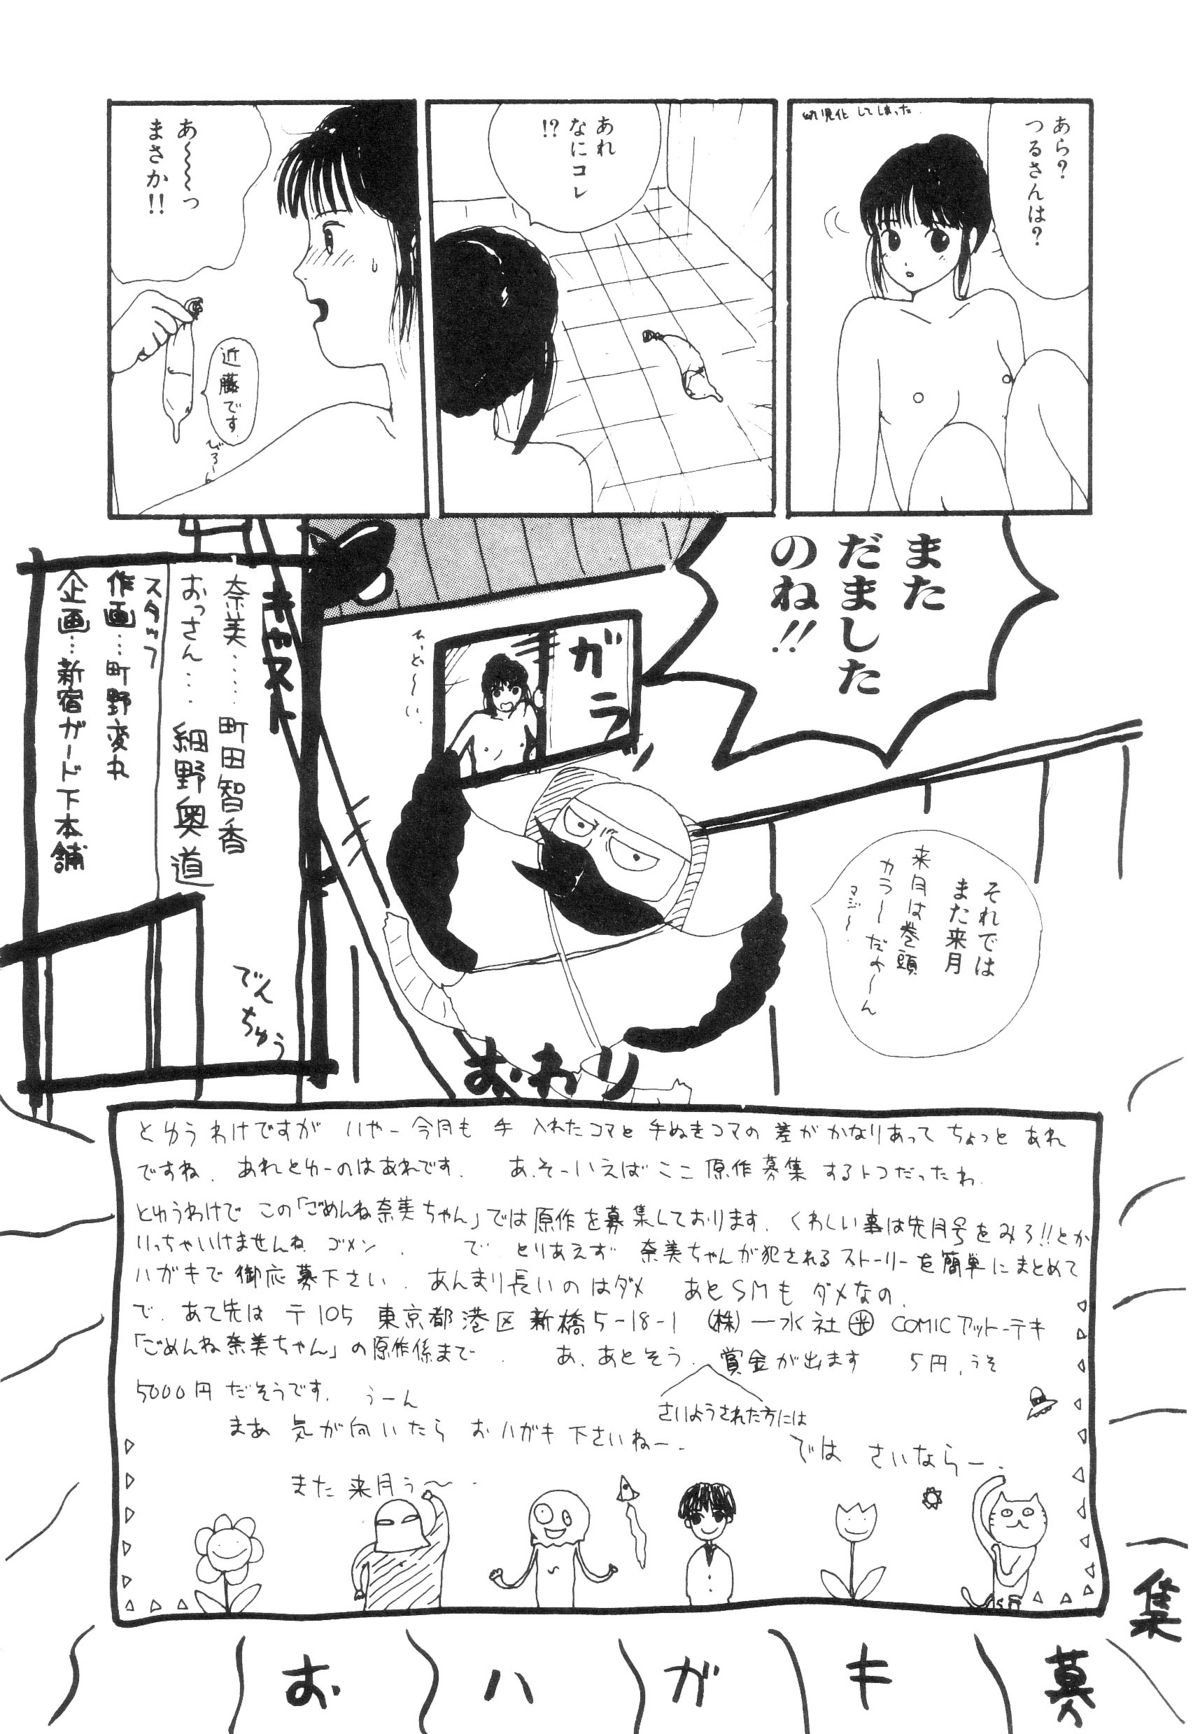 あら?
つるさんは?
幼児化してしまった
あれ
なにコレ
!?
あ〜〜〜っ
まさか!!
近藤です
びろ〜ん
また
だました
のね!!
ガラ
ひっど〜い
それでは
また来月
来月は巻頭
カラーだよーん
マジ〜
キャスト
奈美……町田智香
おっさん…細野奥道
スタッフ
作画…町野変丸
企画…新宿ガード下本舗
でんちゅう
おわり
とゆうわけですが いやー今月も 手入れたコマと手ぬきコマの差がかなりあってちょっとあれ
ですね。あれとゆーのはあれです。 あ、そーいえばここ原作募集するトコだったわ。
とゆうわけで この「ごめんね奈美ちゃん」では原作を募集しております。くわしい事は先月号をみろ!!とか
いっちゃいけませんね ゴメン。 で とりあえず 奈美ちゃんが犯されるストーリーを簡単にまとめて
ハガキで御応募下さい。あんまり長いのはダメ あとSMもダメなの。
で、あて先は 〒105 東京都港区新橋5-18-1 (株)一水社 COMICアットーテキ
「ごめんね奈美ちゃん」の原作係まで。 あ、あとそう。賞金が出ます 5円、うそ
さいようされた方には
5000円だそうです。うーん
まあ 気が向いたら おハガキ下さいねー。
では さいならー。
また 来月う〜。
おハガキ募集